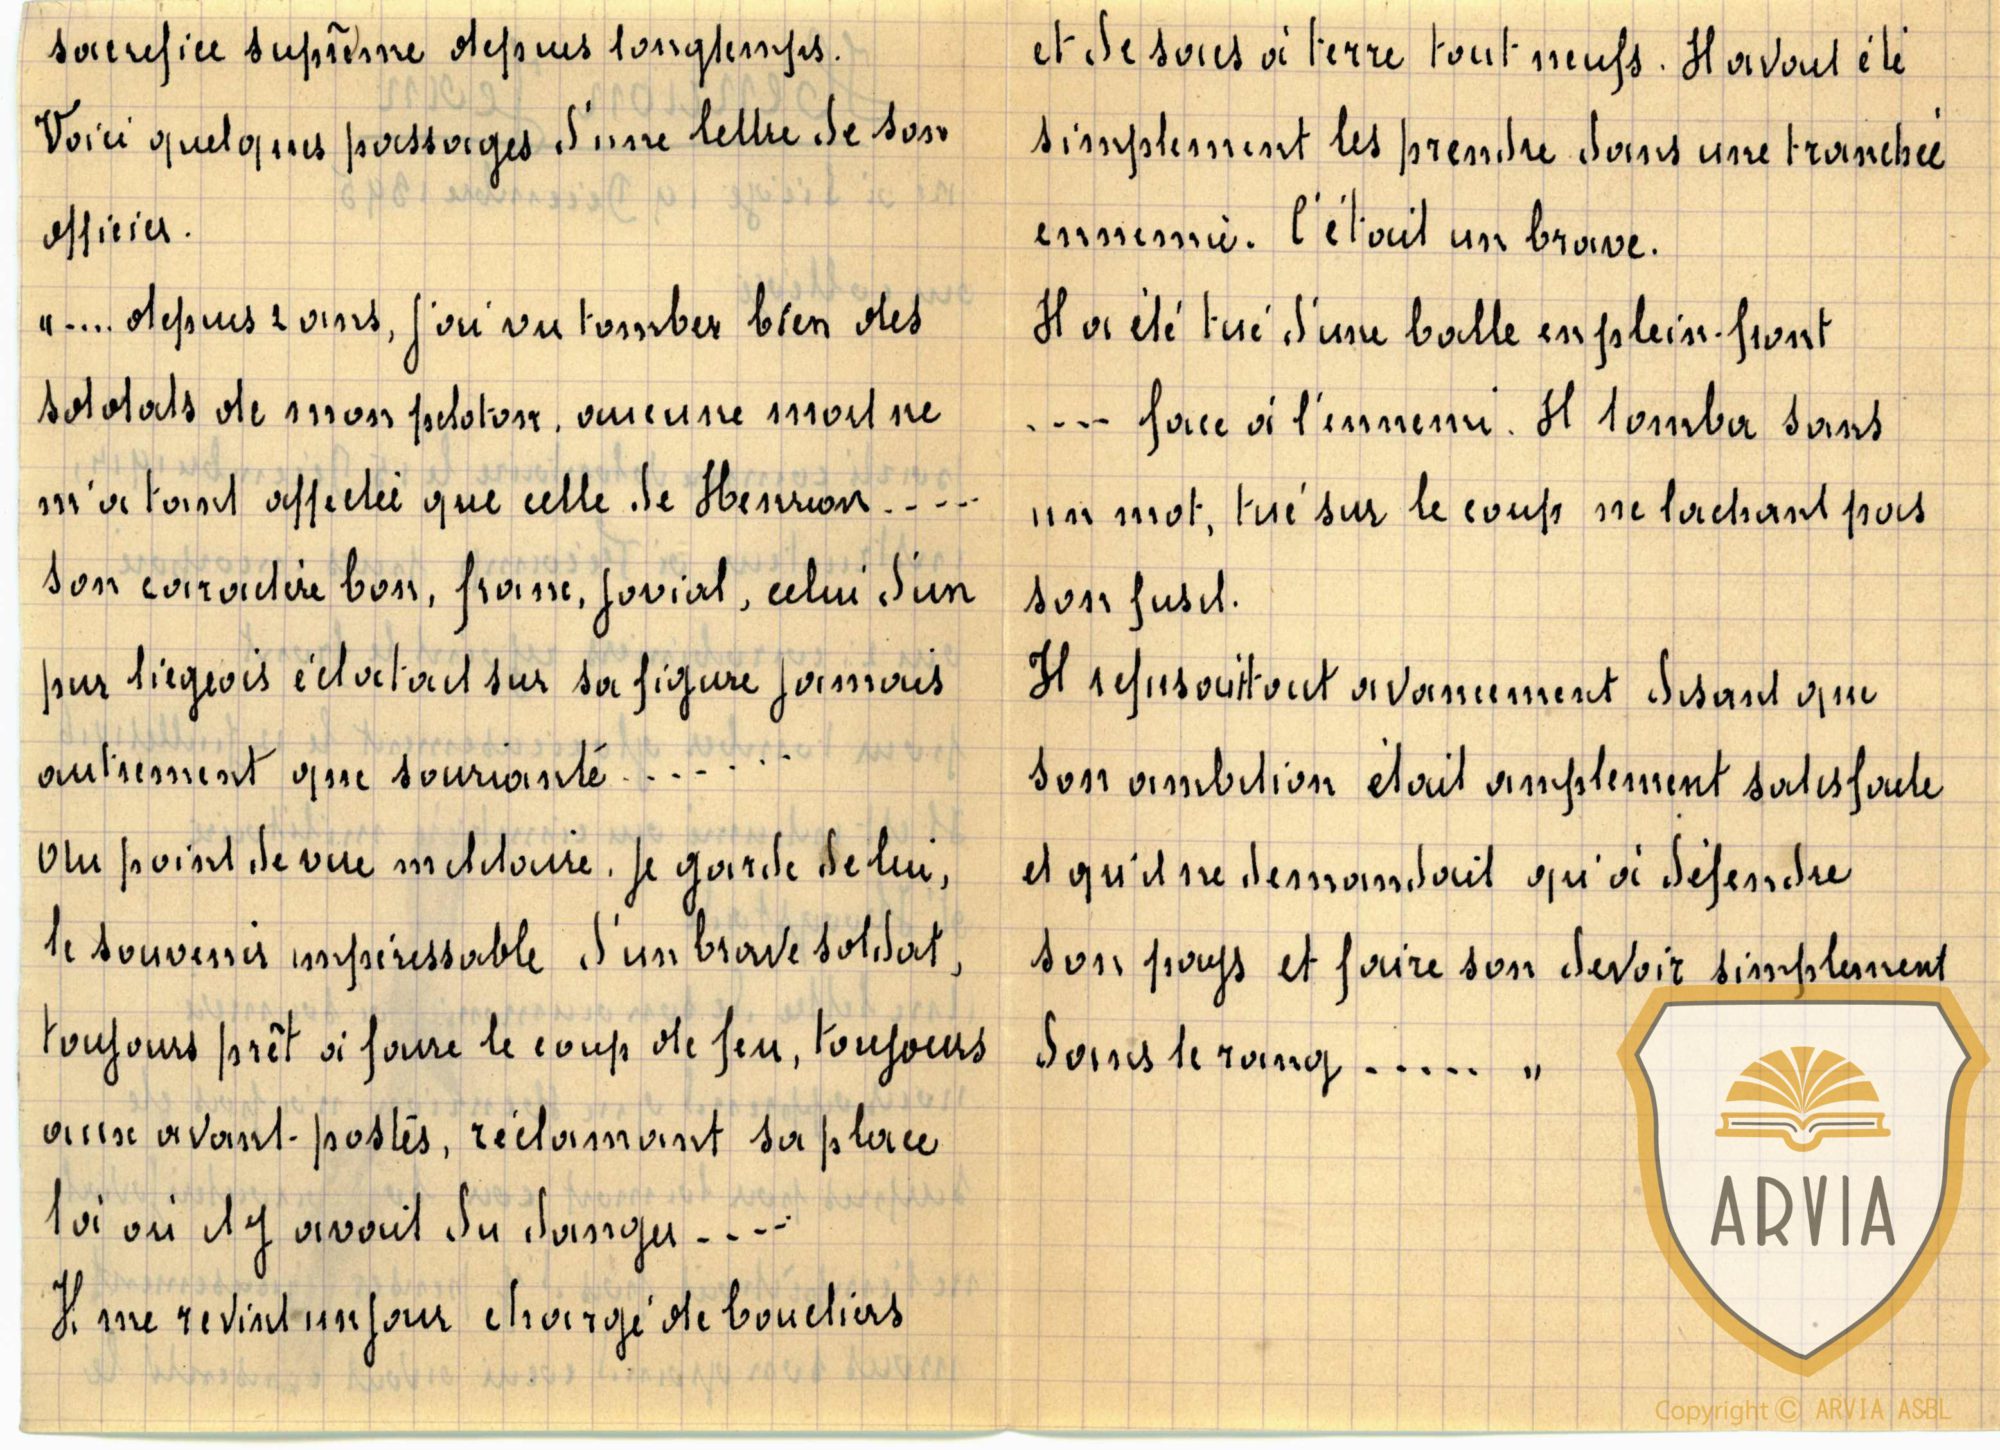 sacrifice suprême depuis longtemps.
Voici quelques passages d'une lettre de son
officier.
".... depuis 2 ans, j'ai vu tomber bien des
soldats de mon peloton, aucune mort ne
m'a tant affectée que celle de Henrion....
son caractère bon, franc, jovial, celui d'un
pur liégeois éclatait sur sa figure jamais
autrement que souriante.......
Au point de vue militaire, je garde de lui,
le souvenir impérissable d'un brave soldat,
toujours prêt à faire le coup de feu, toujours
aux avant-postes, réclamant sa place
là où il y avait du danger....
Il me revint un jour chargé de boucliers
et de sacs à terre tout neufs. Il avait été
simplement les prendre dans une tranchée
ennemie. C'était un brave.
Il a été tué d'une balle en plein-front
.... face à l'ennemi. Il tomba sans
un mot, tué sur le coup ne lachant pas
son fusil.
Il refusait tout avancement disant que
son ambition était amplement satisfaite
et qu'il ne demandait qu'à défendre
son pays et faire son devoir simplement
dans le rang ..... "
ARVIA
Copyright © ARVIA ASBL